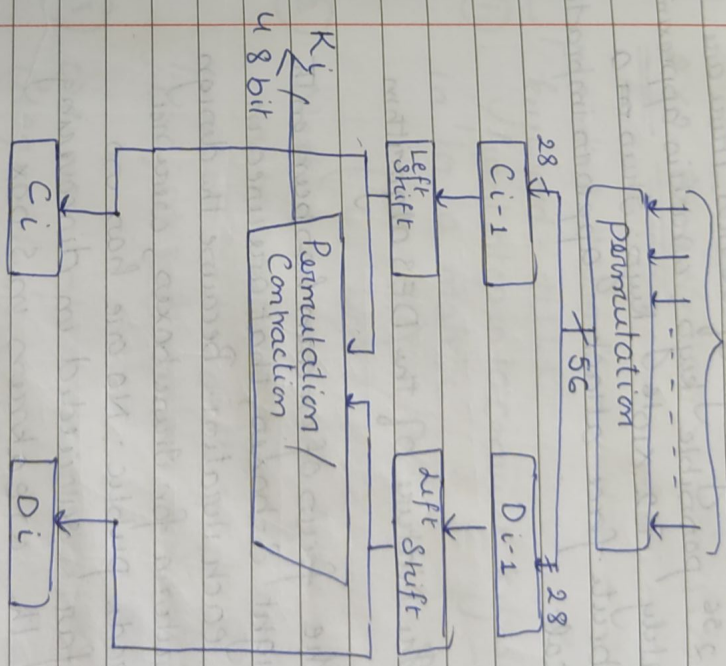 Permutation
56
28
28
Ci-1
Di-1
Left
Shift
Left Shift
Permutation /
Contraction
Ki
48 bit
Ci
Di